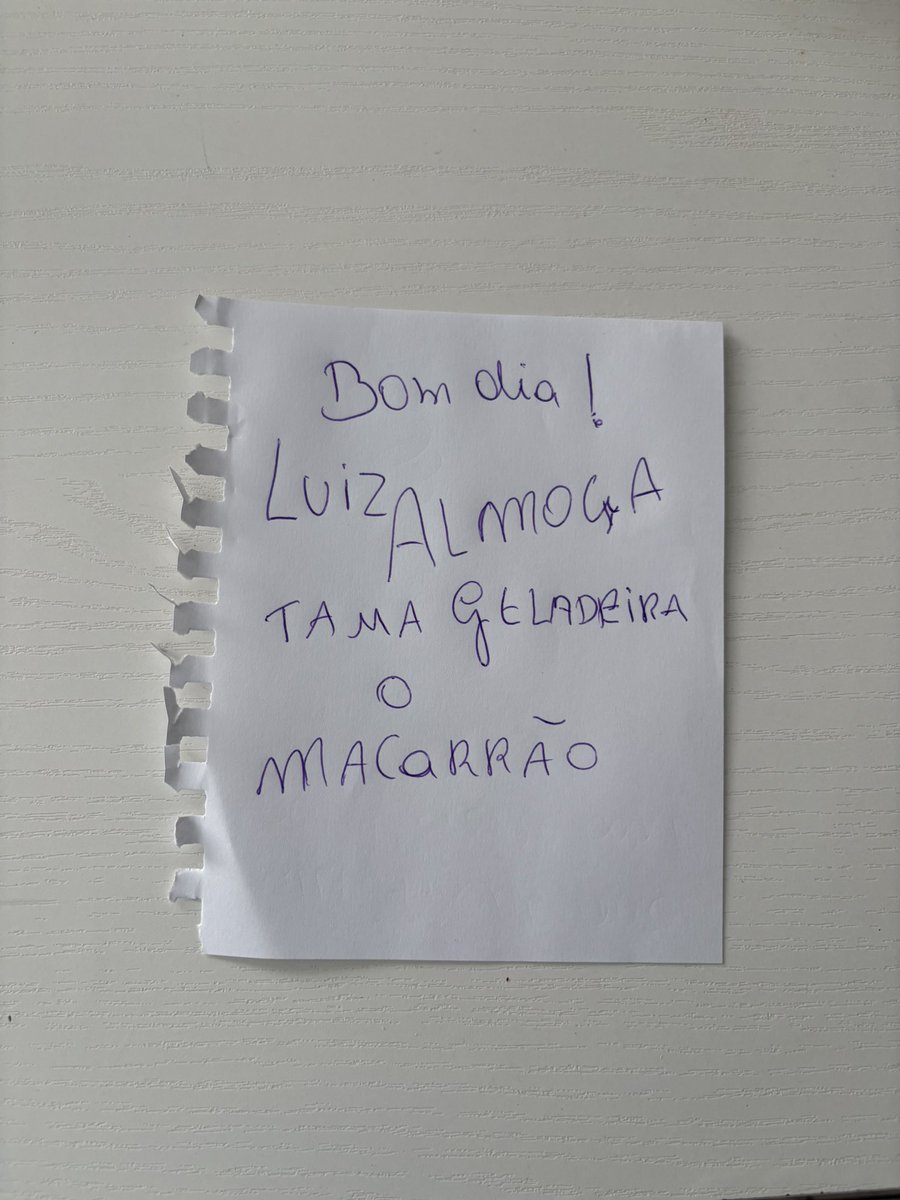 Bom dia!
LUiZ ALMOÇA
TAMA GELADEiRA
O
MACaRRÃO